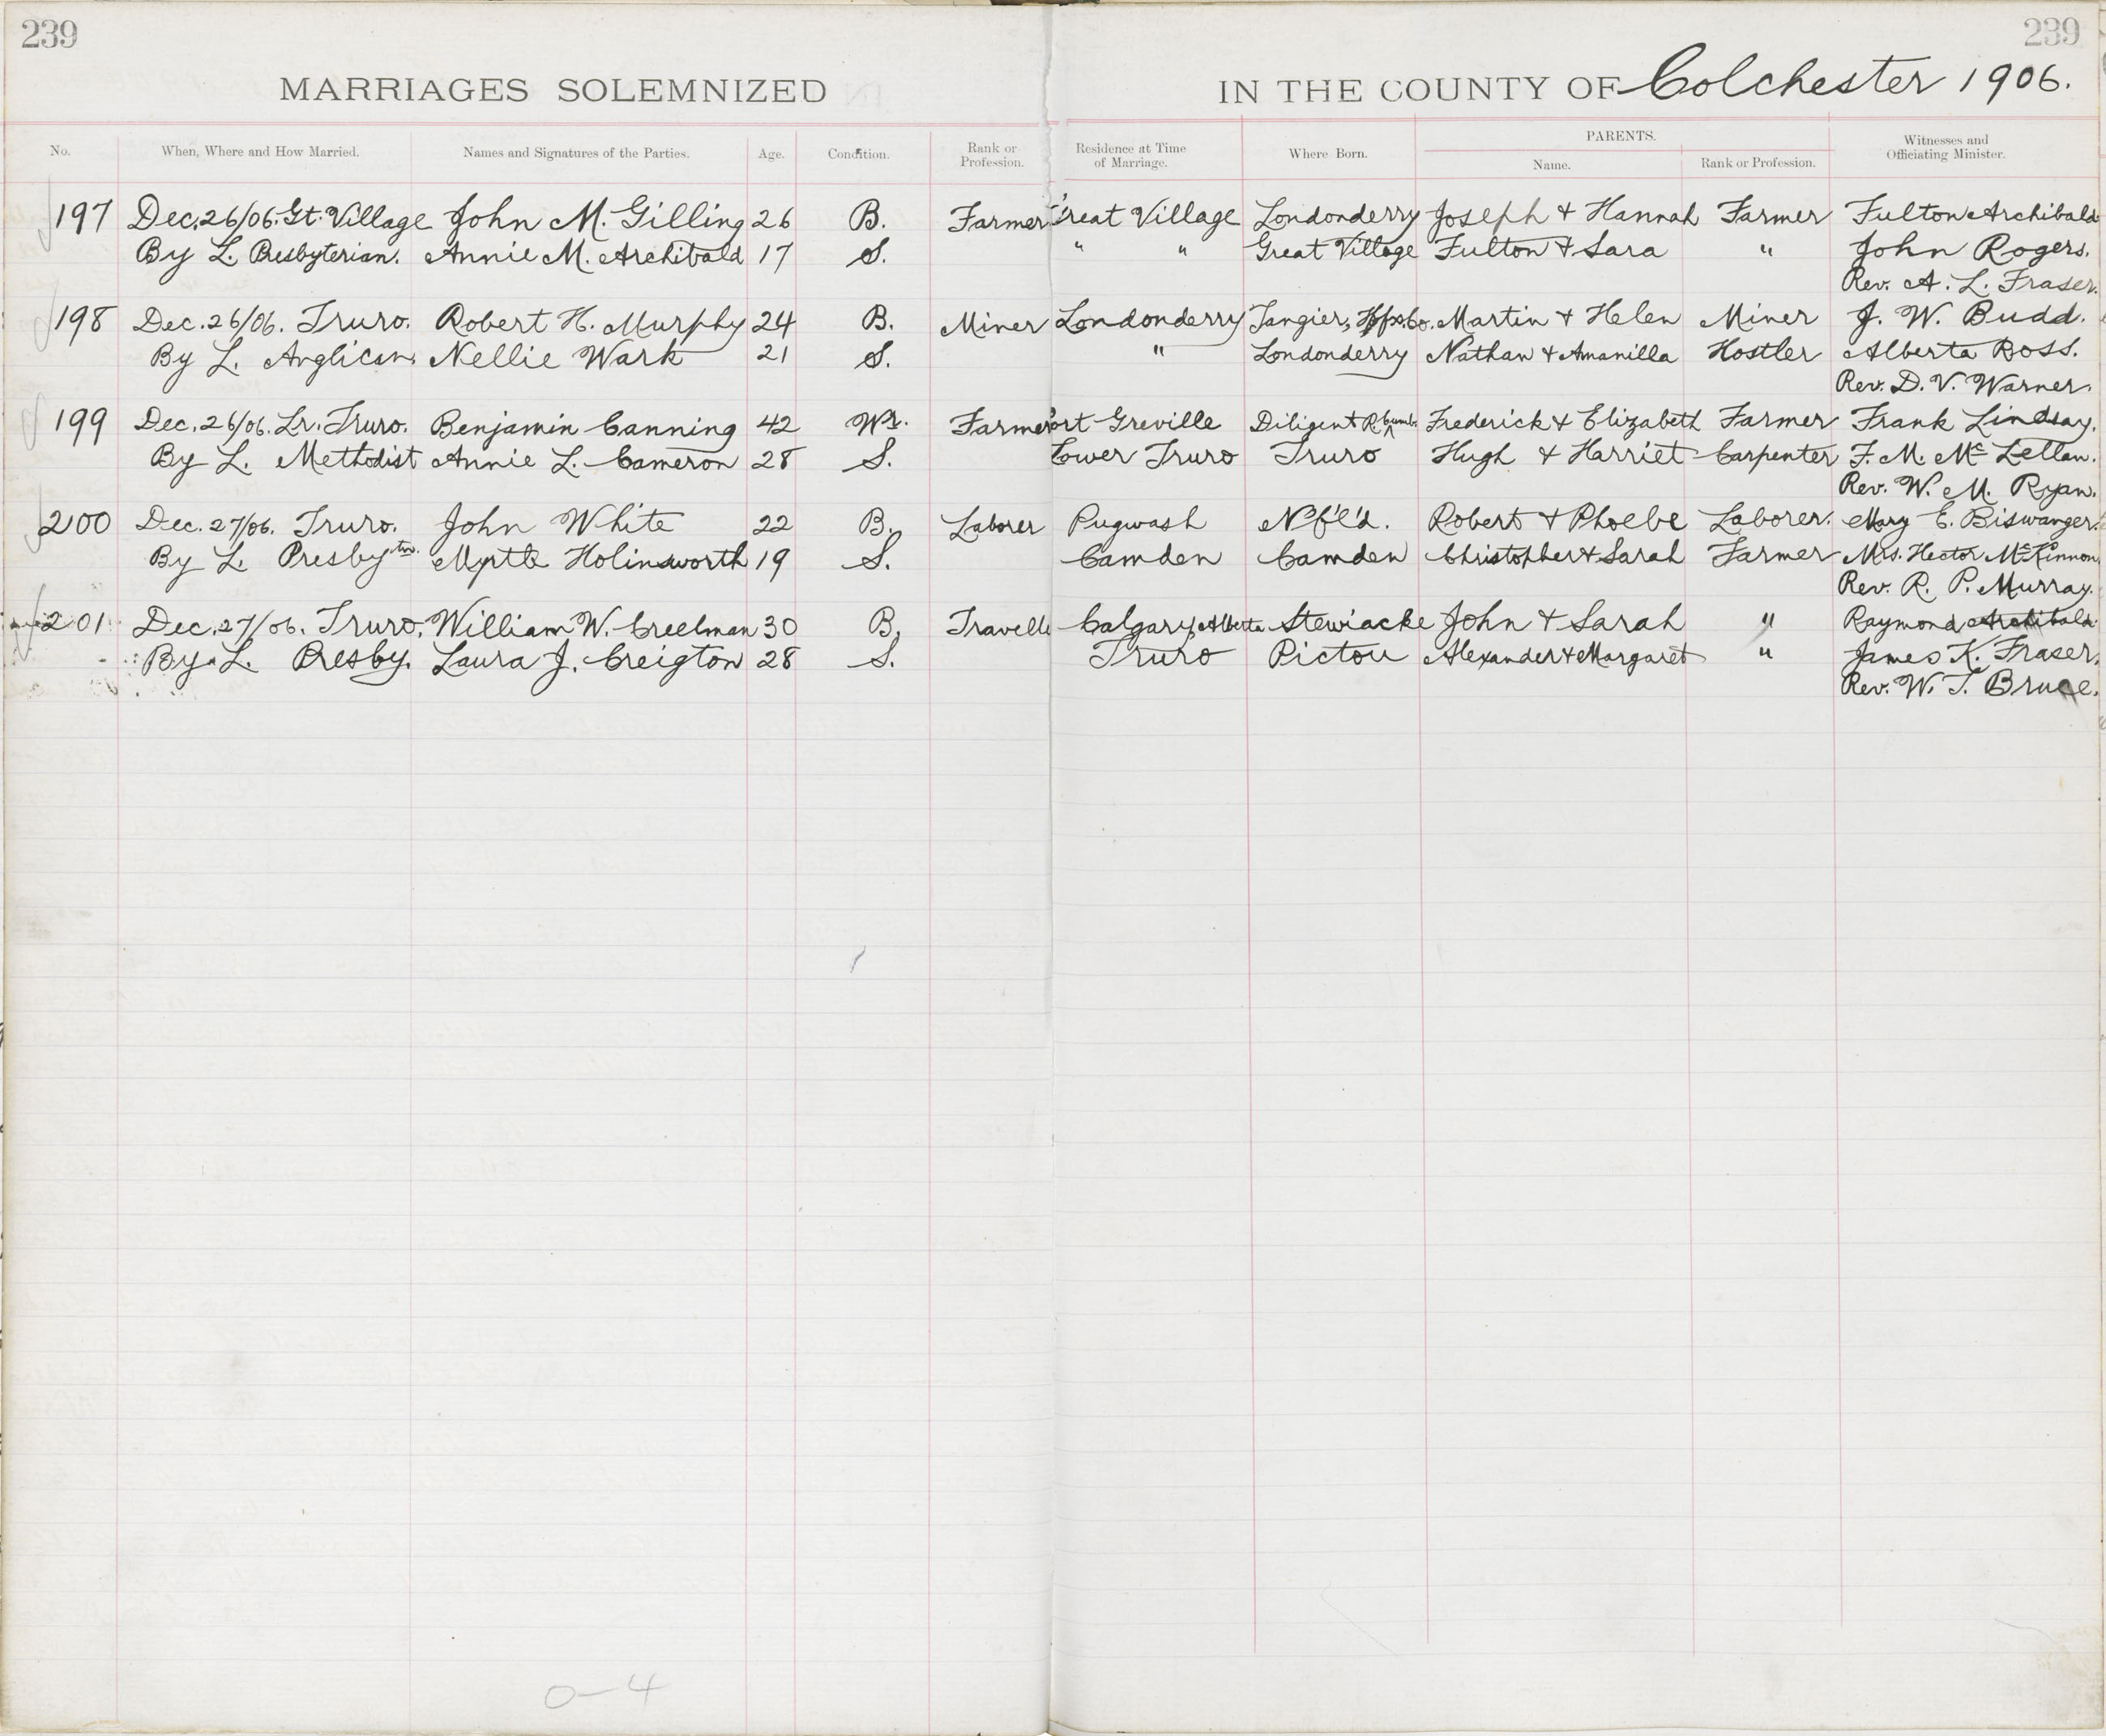 239 239
MARRIAGES SOLEMNIZED IN THE COUNTY OF Colchester 1906.
No. When, Where and How Married. Names and Signatures of the Parties. Age. Condition. Rank or Profession. Residence at Time of Marriage. Where Born. PARENTS. Name. Rank or Profession. Witnesses and Officiating Minister.
197 Dec. 26/06. Gt. Village John M. Gilling 26 B. Farmer Great Village Londonderry Joseph + Hannah Farmer Fulton Archibald
By L. Presbyterian. Annie M. Archibald 17 S. " " Great Village Fulton + Sara " John Rogers.
Rev. A. L. Fraser.
198 Dec. 26/06. Truro. Robert H. Murphy 24 B. Miner Londonderry Tangier, Hfx. Co. Martin + Helen Miner J. W. Budd.
By L. Anglican. Nellie Wark 21 S. " Londonderry Nathan + Amanilla Hostler Alberta Ross.
Rev. D. V. Warner.
199 Dec. 26/06. Lr. Truro. Benjamin Canning 42 Wr. Farmer Port Greville Diligent R. Cumb. Frederick + Elizabeth Farmer Frank Lindsay.
By L. Methodist Annie L. Cameron 28 S. Lower Truro Truro Hugh + Harriet Carpenter F. M. McLellan.
Rev. W. M. Ryan.
200 Dec. 27/06. Truro. John White 22 B. Laborer Pugwash N'f'l'd. Robert + Phoebe Laborer. Mary E. Biswanger.
By L. Presbytn. Myrtle Holinsworth 19 S. Camden Camden Christopher + Sarah Farmer Mrs. Hector McKinnon
Rev. R. P. Murray.
201 Dec. 27/06. Truro. William W. Creelman 30 B. Travelle Calgary, Alberta Stewiacke John + Sarah " Raymond Archibald
By L. Presby. Laura J. Creigton 28 S. Truro Pictou Alexander + Margaret " James K. Fraser.
Rev. W. T. Bruce.
0-4